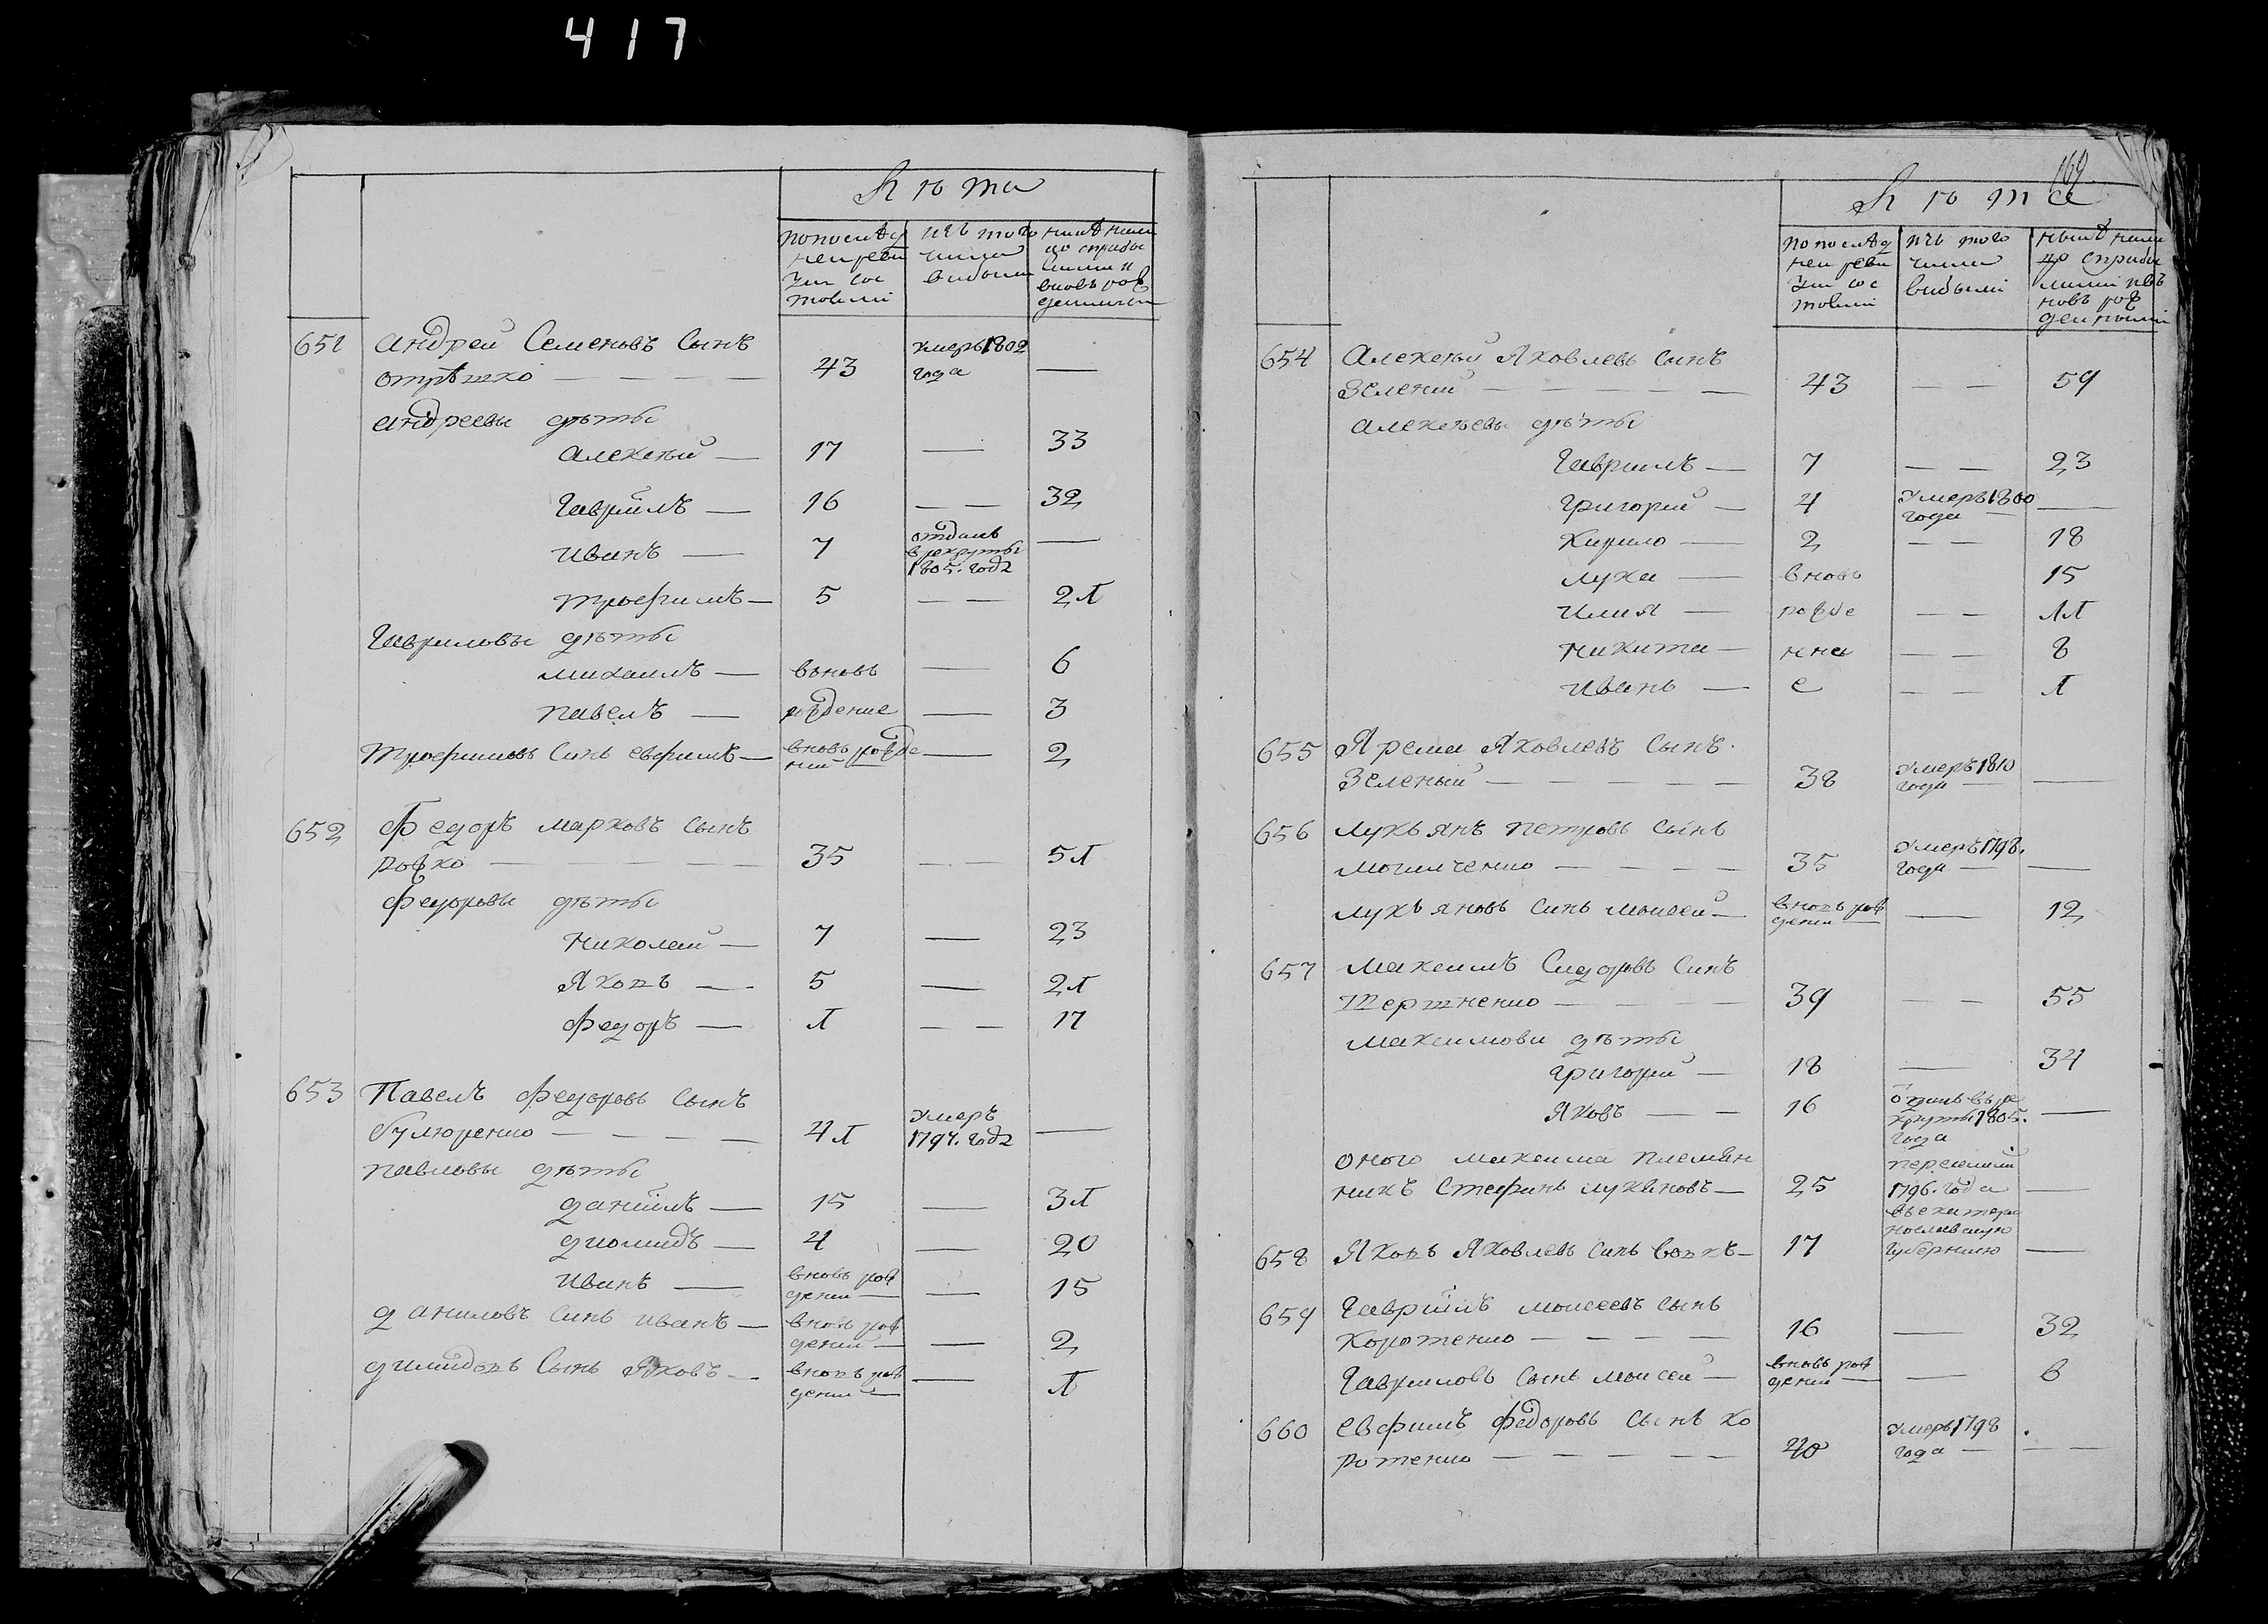 417
Лѣта
по послѣд
ней реви
зіи сос
тояли
изъ того
числа
выбыли
нынѣ нали
цо с прибы
лыми и
вновь рож
денными
651 Андрей Семеновъ Сынъ
отрѣшко — — — — 43 Умеръ 1802 года —
андреевы дѣты
алексѣй — 17 — 33
Гавріилъ — 16 — — 32
иванъ — 7 отданъ в рекруты 1805. года —
трофимъ — 5 — — 21
Гавриловы дѣты
михаилъ — вновь — 6
павелъ — рожденные — 3
трофимовъ Синъ евфимъ — вновь рожде ний — — 2
652 Федоръ марковъ Сынъ
рожко — — — — 35 — — 51
федоровы дѣты
николай — 7 — 23
Яковъ — 5 — 21
федоръ — 1 — — 17
653 Павелъ федоровъ Сынъ
— — — — 41 Умеръ 1794. года —
павловы дѣты
даніилъ — 15 — 31
диомидъ — 4 — 20
иванъ — вновь рож дений — — 15
даниловъ Синъ иванъ — вновь рож дений — — 2
Сынъ Яковъ — вновь рож дений — — 1
169
Лѣта
по послѣд
ней реви
зіи сос
тояли
изъ того
числа
выбыли
нынѣ нали
цо с прибы
лыми и въ
новь рож
денными
654 Алексѣй Яковлевъ Сынъ
Зелений — — — — 43 — — 59
алексѣевы дѣты
Гаврилъ — 7 — — 23
григорий — 4 Умеръ 1800 года — —
Кирило — 2 — — 18
лука — вновь 15
илия — рожде — — 11
никита — нны — — 8
иванъ — е — — 1
655 Ярема Яковлевъ Сынъ.
Зеленый — — — — — 38 Умеръ 1810 года — —
656 лукьянъ петровъ Сынъ
могилченко — — — — 35 Умеръ 1798. года — —
лукьяновъ Синъ моисей — вновь рож дений — — 12
657 максимъ Сидоровъ Синъ
— — — — 39 — 55
максимови дѣты
григорий — 18 — 34
Яковъ — — 16 отданъ въ ре круты 1805. года —
оного максима племян
никъ Стефанъ лукяновъ — 25 переселили 1796. года въ екатери нославскую губернию —
658 Яковъ Яковлевъ Синъ вовкъ — 17 —
659 Гавріилъ моисеевъ Сынъ
Коротенко — — — — 16 — 32
Гавриловъ Сынъ моисей — вновь рож дений — — 6
660 евфимъ федоровъ Сынъ ко
ротенко — — — — — 40 Умеръ 1798 года — — —